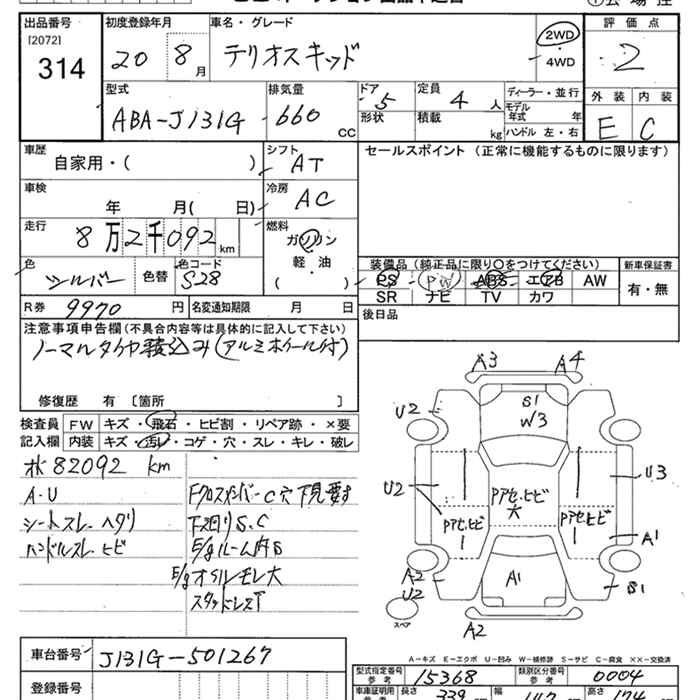 出品番号 初度登録年月 車名・グレード 2WD 評価点
[2072] 20 8月 テリオスキッド ・ 2
314 4WD
型式 排気量 ドア 定員 ディーラー・並行 外装 内装
ABA-J131G 660 CC 5 4 人 モデル年式 年 E C
形状 積載 kg ハンドル 左・右
車歴 シフト セールスポイント (正常に機能するものに限ります)
自家用・( ) AT
車検 冷房
年 月( 日) AC
走行 燃料
8万2千092 km ガソリン
軽・油
( )
色 色コード 装備品 (純正品に限り○をつけてください) 新車保証書
シルバー 色替 S28 PS PW ABS エアB AW 有・無
SR ナビ TV カワ
R券 9970 円 名変通知期限 月 日 後日品
注意事項申告欄 (不具合内容等は具体的に記入して下さい)
ノーマルタイヤ積込み(アルミホイール付)
修復歴 有 [箇所 ]
検査員 FW キズ・飛石・ヒビ割・リペア跡・×要
記入欄 内装 キズ・汚れ・コゲ・穴・スレ・キレ・破レ
82092 km
A・U
シートスレ ヘタリ
ハンドルスレ ヒビ
Fクロスメンバー C穴 下見要す
下廻りS.C
E/gルーム内S
E/gオイルモレ大
スタッドレス
A3 A4
U2 S1
W3
U2 U3
Pアセ.ヒビ 大
Pアセ.ヒビ Pアセ.ヒビ
A1
A2 A1 S1
U2
スペア A2
A-キズ E-エクボ U-凹み W-補修跡 S-サビ C-腐食 ××-交換済
車台番号 J131G-501267 型式指定番号 参考 15368 類別区分番号 参考 0004
登録番号 車庫証明用 長さ 339 幅 147 高さ 174